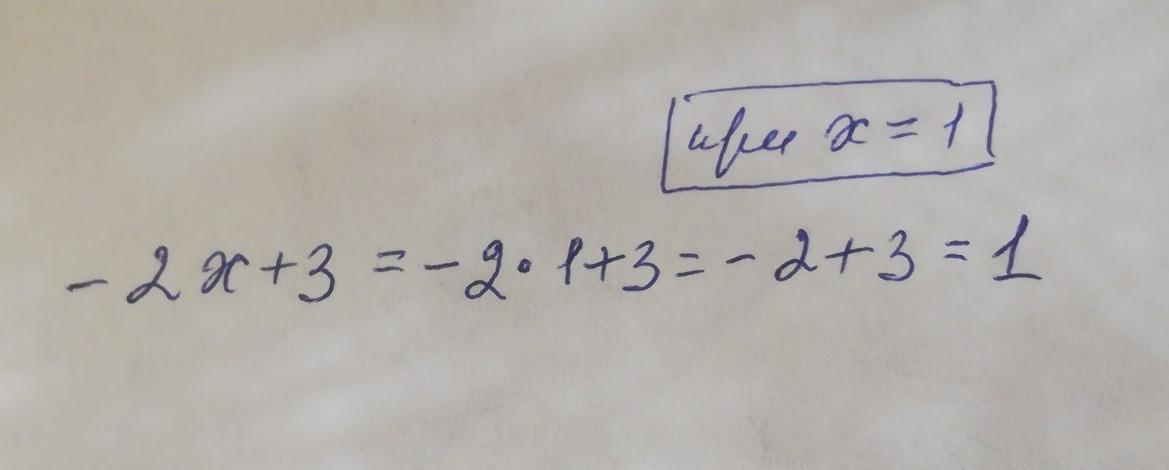 при x = 1
- 2x + 3 = - 2 • 1 + 3 = - 2 + 3 = 1